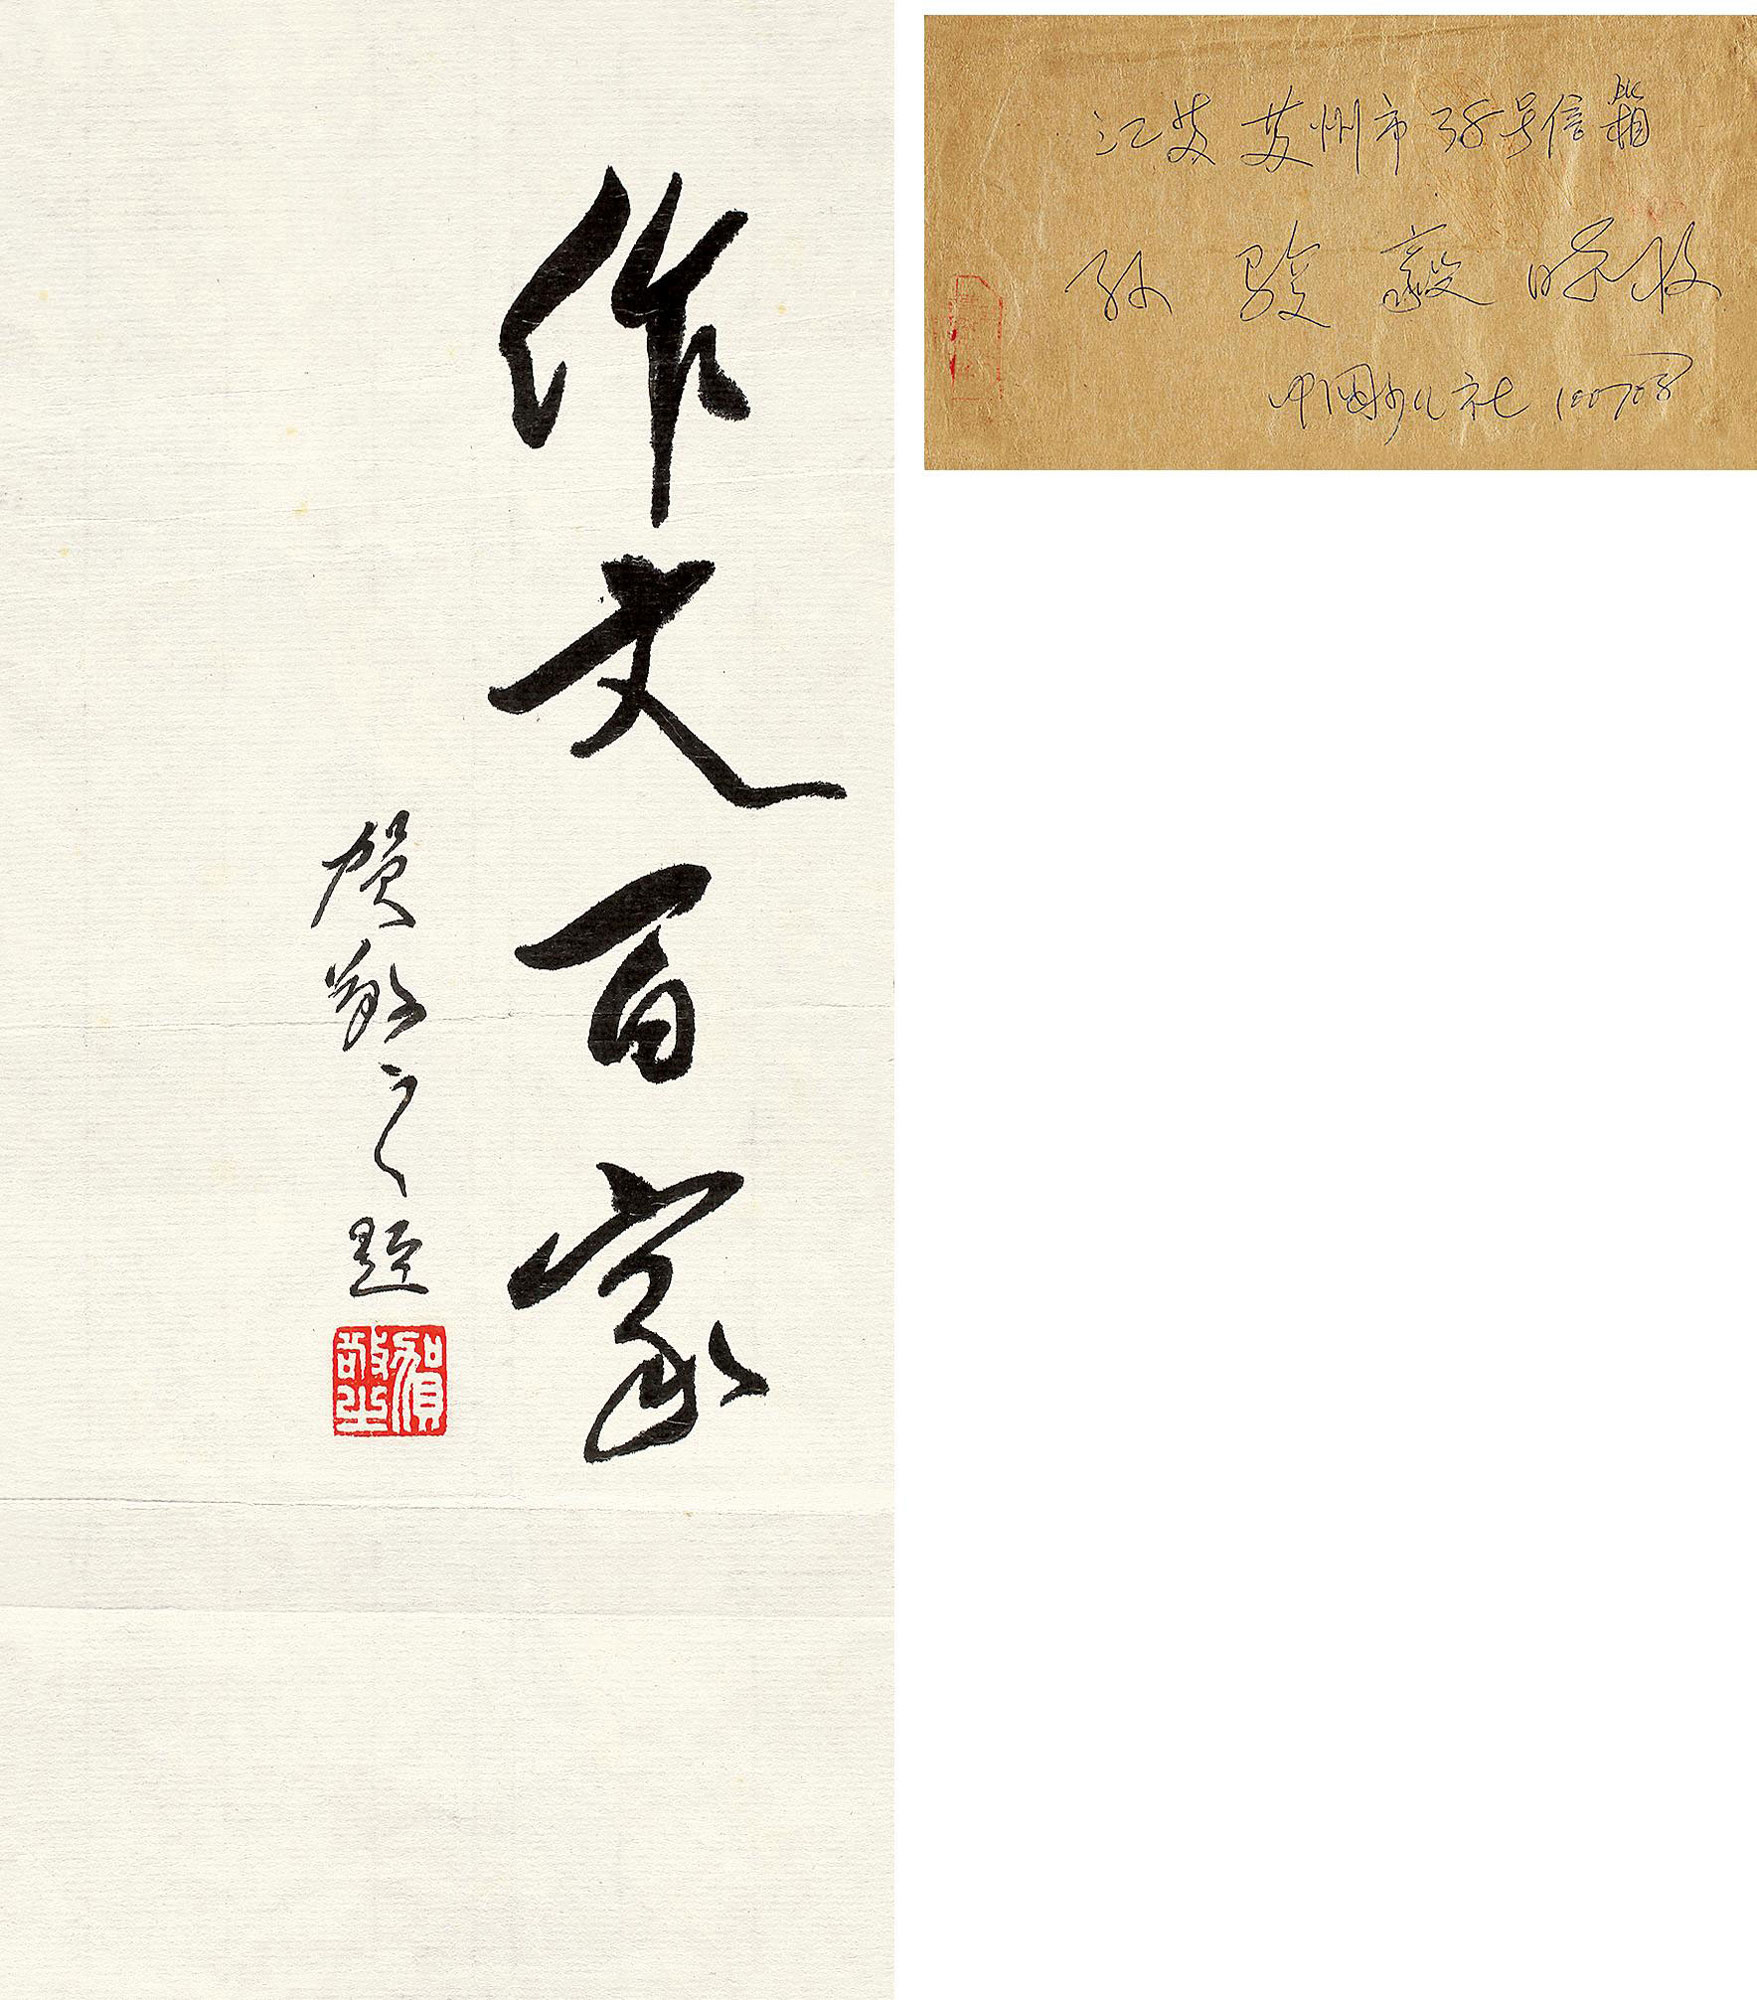 作文百家
贺敬之题
贺敬之
江苏 苏州市 35号信箱
孙骏毅 收
中国少儿社 100708